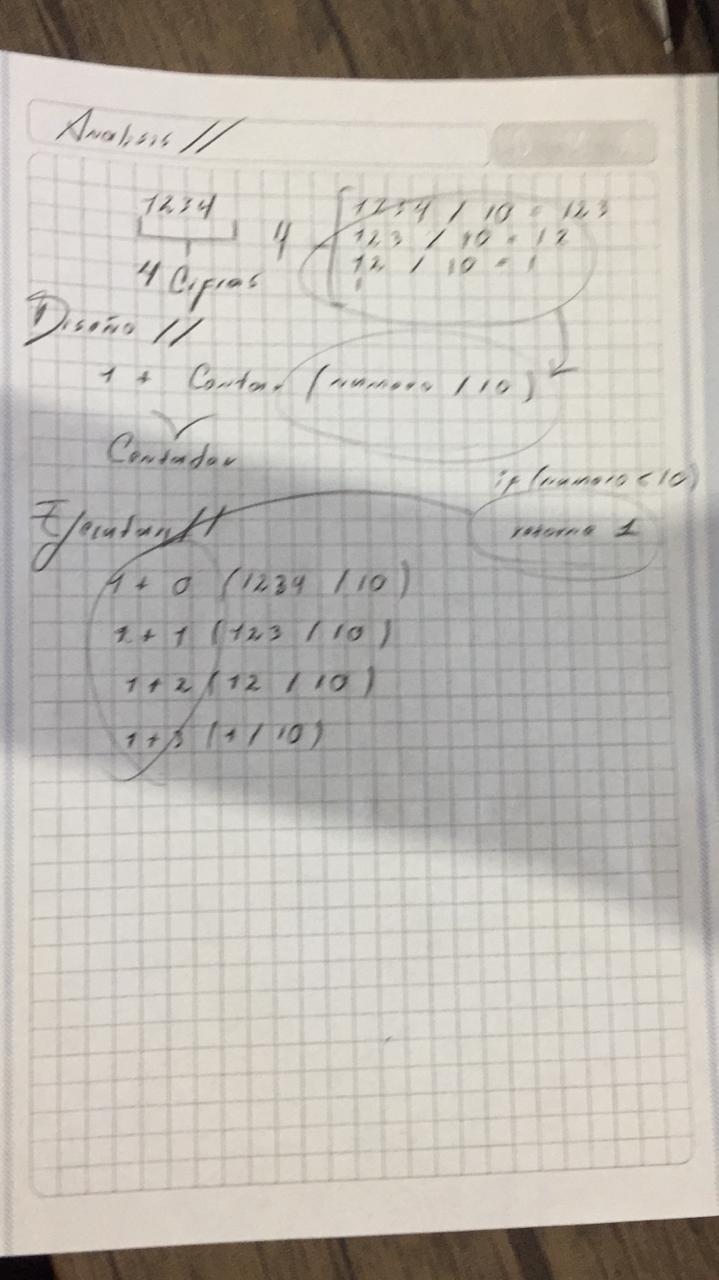 Analisis //
1234
4 Cifras
4
1234 / 10 = 123
123 / 10 = 12
12 / 10 = 1
1
Diseño //
1 + Contar (numero / 10)
Contador
if (numero < 10)
retorna 1
1 + 0 (1234 / 10)
1 + 1 (123 / 10)
1 + 2 (12 / 10)
1 + 3 (1 / 10)